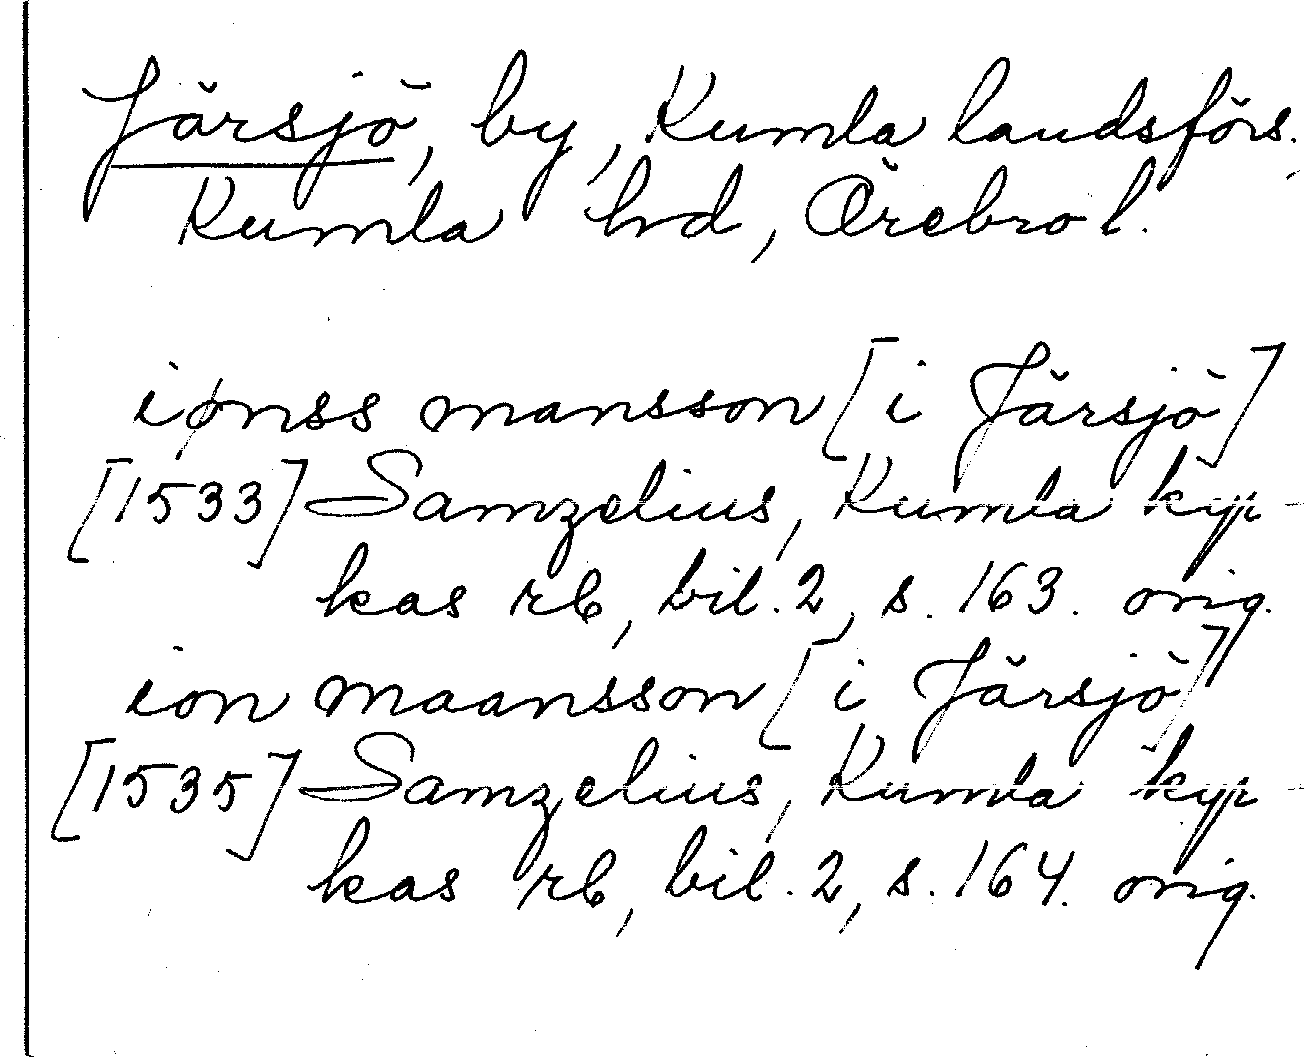 Järsjö, by, Kumla landsförs.,
Kumla hd, Örebro l.
iønss mansson [i Järsjö]
[1533] Samzelius, Kumla kyr-
kas rb, bil. 2, s. 163. orig.
ion maansson [i Järsjö]
[1535] Samzelius, Kumla kyr-
kas rb, bil. 2, s. 164. orig.